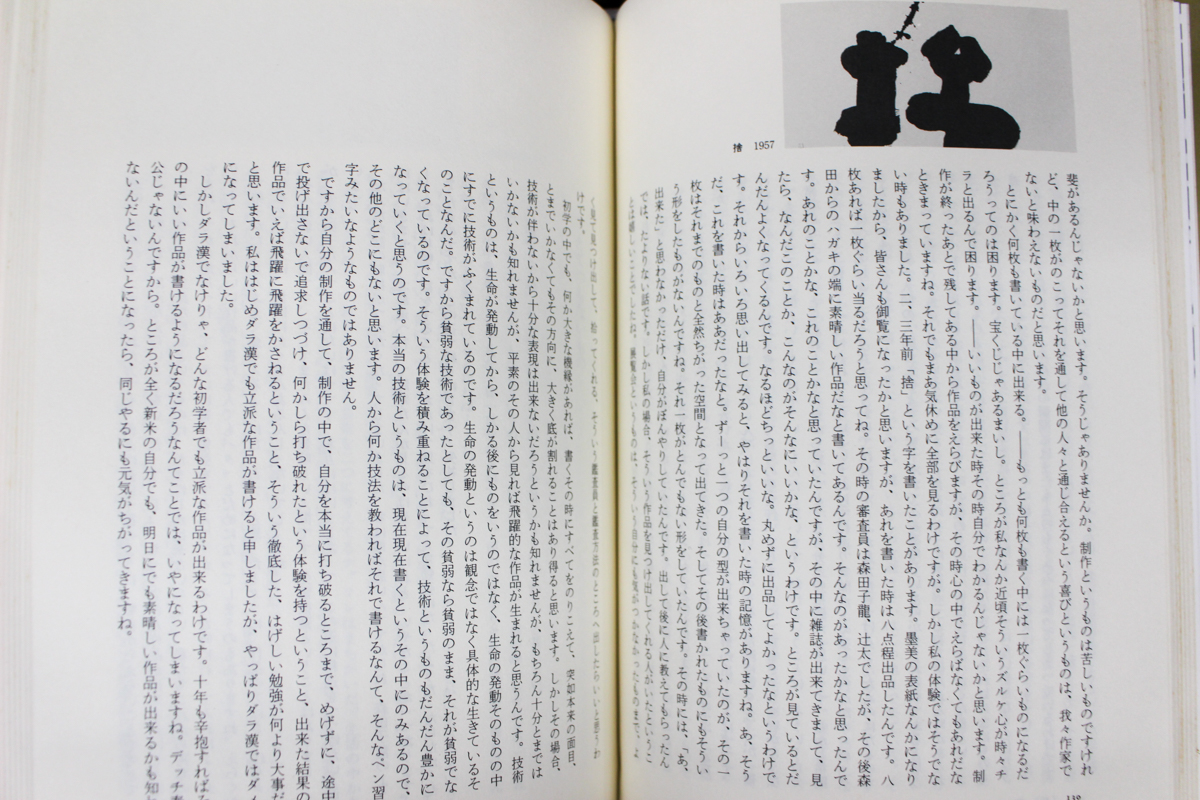 捨 1957
斐があるんじゃないかと思います。そうじゃありませんか。制作というものは苦しいものですけれ
ど、中の一枚がのこってそれを通して他の人々と通じ合えるという喜びというものは、我々作家で
ないと味わえないものだと思います。
とにかく何枚も書いている中に出来る。――もっと何枚も書く中には一枚ぐらいものになるだ
ろうってのは困ります。宝くじじゃあるまいし。ところが私なんか近頃そういうズルケ心が時々チ
ラと出るんで困ります。――いいものが出来た時その時自分でわかるんじゃないかと思います。制
作が終ったあとで残してある中から作品をえらびますが、その時心の中でえらばなくてもあれだな
ときまっていますね。それでもまあ気休めに全部を見るわけですが。しかし私の体験ではそうでな
い時もありました。二、三年前「捨」という字を書いたことがあります。墨美の表紙なんかになり
ましたから、皆さんも御覧になったかと思いますが、あれを書いた時は八点程出品したんです。八
枚あれば一枚ぐらい当るだろうと思ってね。その時の審査員は森田子龍、辻太でしたが、その後森
田からのハガキの端に素晴しい作品だなと書いてあるんです。そんなのがあったかなと思ったんで
す。あれのことかな、これのことかなと思っていたんですが、その中に雑誌が出来てきまして、見
たら、なんだこのことか、こんなのがそんなにいいかな、というわけです。ところが見ているとだ
んだんよくなってくるんです。なるほどちっといいな。丸めずに出品してよかったなというわけで
す。それからいろいろ思い出してみると、やはりそれを書いた時の記憶がありますね。あ、そう
だ、これを書いた時はああだったなと。ずーっと一つの自分の型が出来ちゃっていたのが、その一
枚はそれまでのものと全然ちがった空間となって出てきた。そしてその後書かれたものにもそうい
う形をしたものがないんですね。それ一枚がとんでもない形をしていたんです。その時には、「あ、
出来た」と思わなかっただけ、自分がぼんやりしていたんです。出して後に人に教えてもらったん
では、たよりない話です。しかし私の場合、そういう作品を見つけ出してくれる人がいたというこ
とは嬉しいことでしたね。展覧会というものは、そういう自分にも気がつかなかったものまで、よ
く見て見つけ出して、拾ってくれる、そういう鑑査員と鑑査方法のところへ出したらいいと思うわ
けです。
初学の中でも、何か大きな機縁があれば、書くその時にすべてをのりこえて、突如本来の面目、
とまでいかなくてもその方向に、大きく底が割れることはあり得ると思います。しかしその場合、
技術が伴わないから十分な表現は出来ないだろうというかも知れませんが、もちろん十分とまでは
いかないかも知れませんが、平素のその人から見れば飛躍的な作品が生まれると思うんです。技術
というものは、生命が発動してから、しかる後にものをいうのではなく、生命の発動そのものの中
にすでに技術がふくまれているのです。生命の発動というのは観念ではなく具体的な生きているそ
のことなんだ。ですから貧弱な技術であったとしても、その貧弱なら貧弱のまま、それが貧弱でな
くなっているのです。そういう体験を積み重ねることによって、技術というものもだんだん豊かに
なっていくと思うのです。本当の技術というものは、現在現在書くというその中にのみあるので、
その他のどこにもないと思います。人から何か技法を教わればそれで書けるなんて、そんなペン習
字みたいなようなものではありません。
ですから自分の制作を通して、制作の中で、自分を本当に打ち破るところまで、めげずに、途中
で投げ出さないで追求しつづけ、何かしら打ち破れたという体験を持つということ、出来た結果の
作品でいえば飛躍に飛躍をかさねるということ、そういう徹底した、はげしい勉強が何より大事だ
と思います。私ははじめダラ漢でも立派な作品が書けると申しましたが、やっぱりダラ漢ではダメ
になってしまいました。
しかしダラ漢でなけりゃ、どんな初学者でも立派な作品が出来るわけです。十年も辛抱すればそ
の中にいい作品が書けるようになるだろうなんてことでは、いやになってしまいますね。デッチ奉
公じゃないんですから。ところが全く新米の自分でも、明日にでも素晴しい作品が出来るかも知れ
ないんだということになったら、同じやるにも元気がちがってきますね。